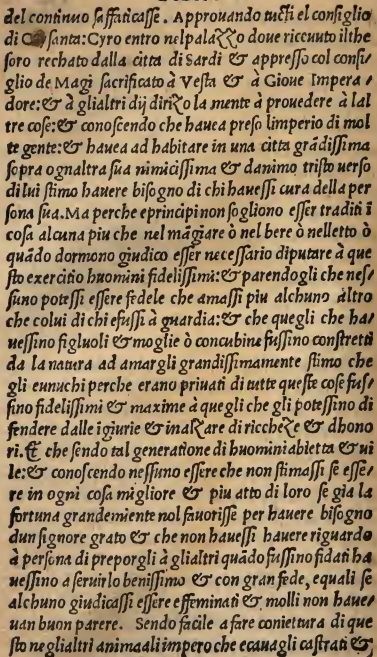 del continuo s'affaticasse. Approuando tutti el consiglio
di santa: Cyro entro nel palazzo doue riceuuto il the
soro rechato dalla citta di Sardi & appresso col consi/
glio de Magi sacrificato à Vesta & à Gioue Impera /
dore: & à gli altri dij dirizo la mente à prouedere à lal
tre cose: & conoscendo che hauea preso limperio di mol
te gente: & hauea ad habitare in una citta grādissima
sopra ognaltra sua nimicissima & danimo tristo uerso
di lui stimo hauere bisogno di chi hauessi cura della per
sona sua. Ma perche eprincipi non sogliono esser traditi ī
cosa alcuna piu che nel māgiare ò nel bere ò nelletto ò
quādo dormono giudico esser necessario diputare à que
sto exercitio huomini fidelissimi: & parendogli che nes/
suno potessi essere fedele che amassi piu alchuno altro
che colui di chi efussi à guardia: & che quegli che ha/
uessino figluoli & moglie ò concubine fussino constretti
da la natura ad amargli grandissimamente stimo che
gli eunuchi perche erano priuati di tutte queste cose fus/
sino fidelissimi & maxime à quegli che gli potessino di
fendere dalle igiurie & inalzare di riccheze & dhono
ri. Et che sendo tal generatione di huomini abietta & ui
le: & conoscendo nessuno essere che non stimassi se esse/
re in ogni cosa migliore & piu atto di loro se gia la
fortuna grandemiente nol fauorisse per hauere bisogno
dun signore grato & che non hauessi hauere riguardo
à persona di preporgli à gli altri quādo fussino fidati ha
uessino a seruirlo benissimo & con gran fede, equali se
alchuno giudicassi essere effeminati & molli non haue/
uan buon parere. Sendo facile a fare coniettura di que
sto ne gli altri animaali impero che ecauagli castrati &